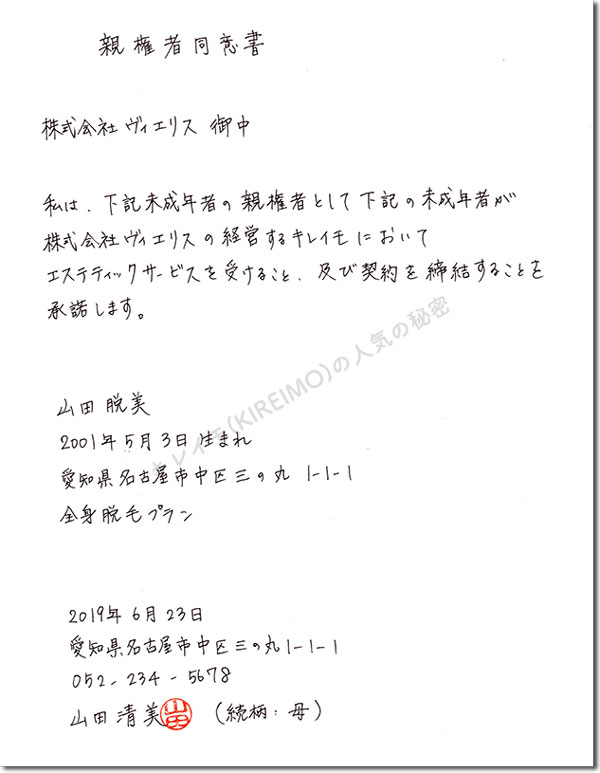 親権者同意書
株式会社ヴィエリス 御中
私は、下記未成年者の親権者として下記の未成年者が
株式会社ヴィエリスの経営するキレイモにおいて
エステティックサービスを受けること、及び契約を締結することを
承諾します。
キレイモ(KIREIMO)の人気の秘密
山田 脱美
2001年5月3日生まれ
愛知県名古屋市中区三の丸 1-1-1
全身脱毛プラン
2019年6月23日
愛知県名古屋市中区三の丸1-1-1
052-234-5678
山田 清美 山田 (続柄:母)